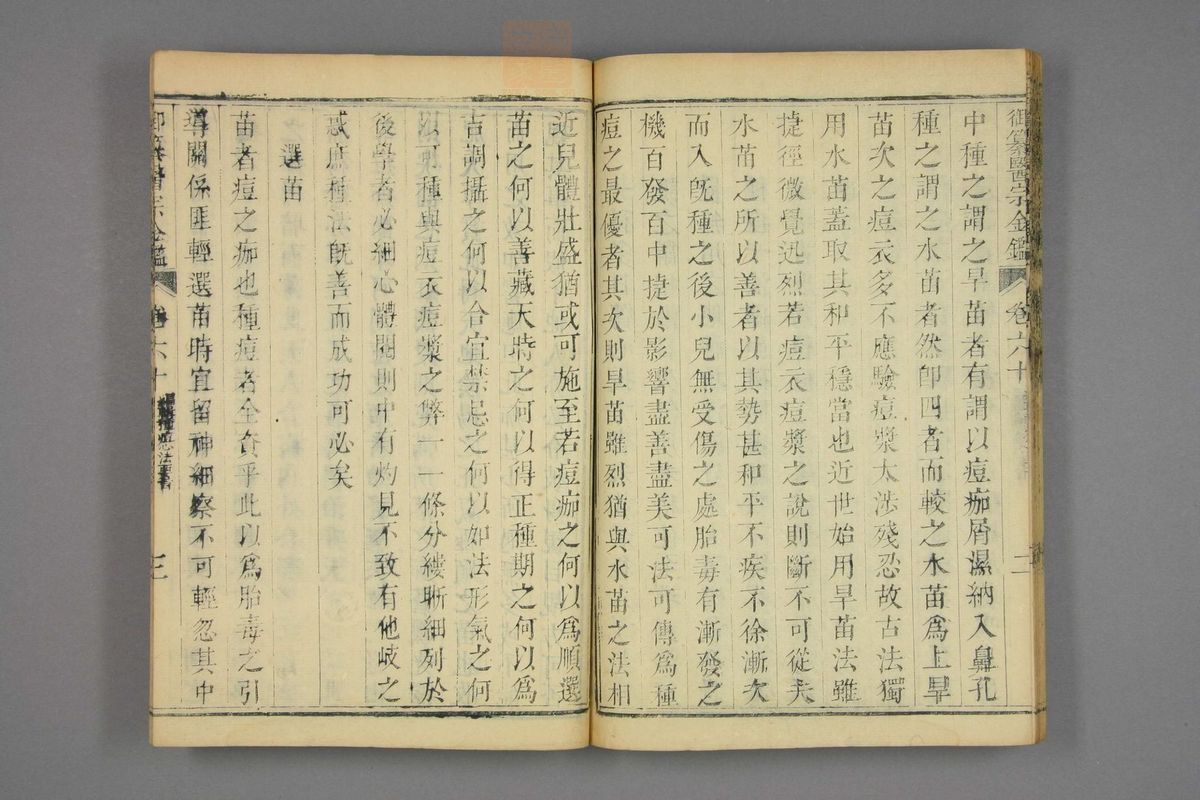 御纂醫宗金鑑 卷六十 二
中種之謂之旱苗者有謂以痘痂屑濕納入鼻孔
種之謂之水苗者然卽四者而較之水苗爲上旱
苗次之痘衣多不應驗痘漿太涉殘忍故古法獨
用水苗蓋取其和平穩當也近世始用旱苗法雖
捷徑微覺迅烈若痘衣痘漿之說則斷不可從夫
水苗之所以善者以其勢甚和平不疾不徐漸次
而入旣種之後小兒無受傷之處胎毒有漸發之
機百發百中捷於影響盡善盡美可法可傳爲種
痘之最優者其次則旱苗雖烈猶與水苗之法相
近兒體壯盛猶或可施至若痘痂之何以爲順選
苗之何以善藏天時之何以得正種期之何以爲
吉調攝之何以合宜禁忌之何以如法形氣之何
以可種與痘衣痘漿之弊一一條分縷晰細列於
後學者必細心體閱則中有灼見不致有他岐之
惑庶種法旣善而成功可必矣
選苗
苗者痘之痂也種痘者全資乎此以爲胎毒之引
導關係匪輕選苗時宜留神細察不可輕忽其中
御纂醫宗金鑑 卷六十 種痘心法要旨 三